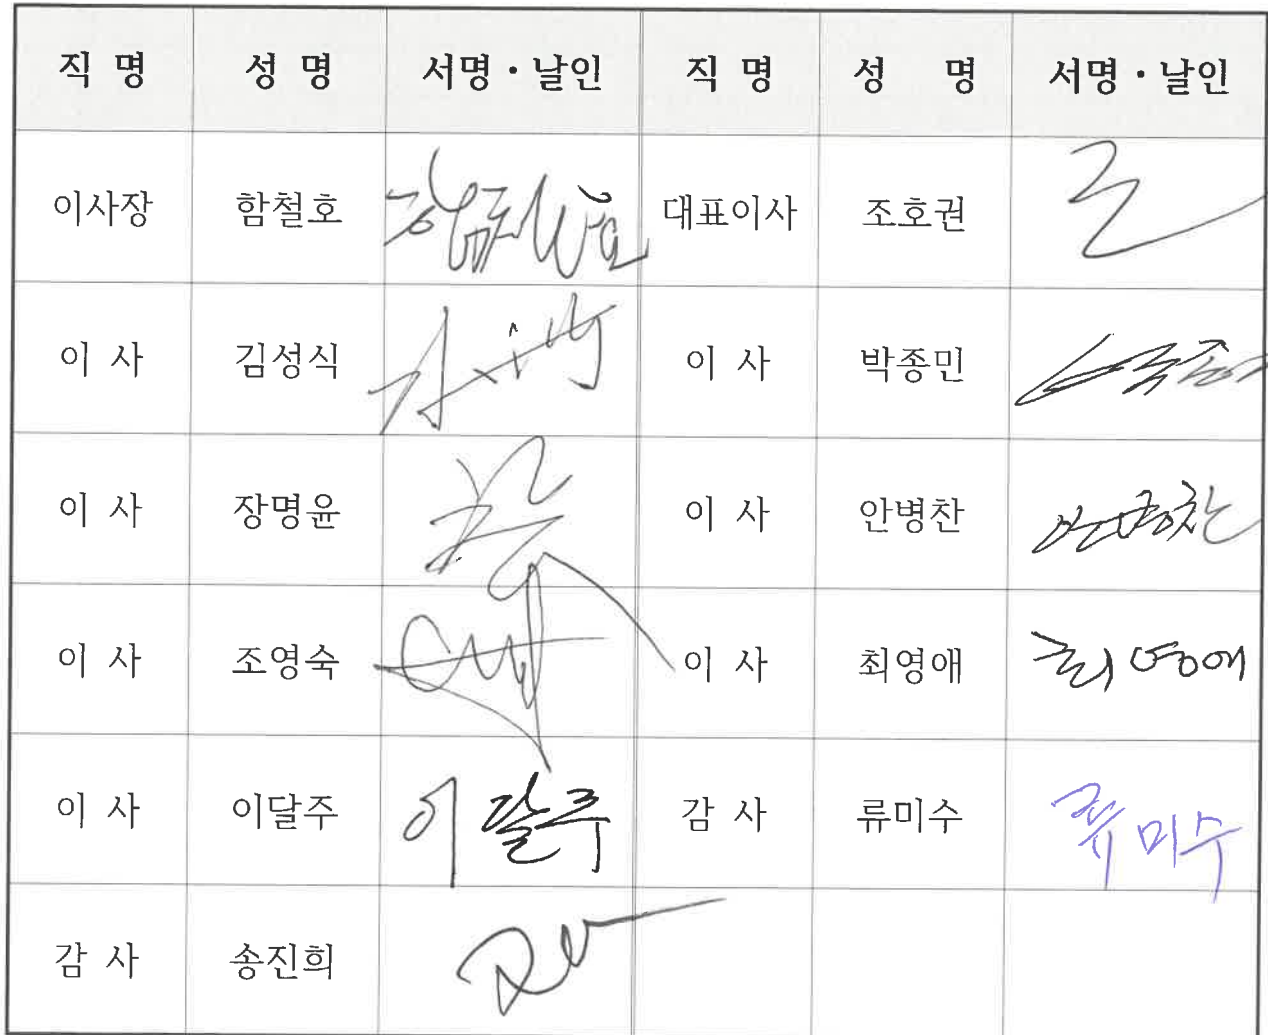 직 명 성 명 서명·날인 직 명 성 명 서명·날인
이사장 함철호 대표이사 조호권
이 사 김성식 이 사 박종민
이 사 장명윤 이 사 안병찬 안병찬
이 사 조영숙 이 사 최영애 최영애
이 사 이달주 이달주 감 사 류미수 류미수
감 사 송진희